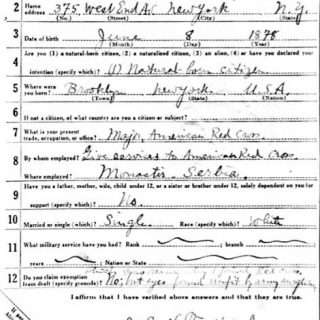 2 Home address 375 West End Av. New York N.Y.
(No.) (Street) (City) (State)
3 Date of birth June 8 1878
(Month) (Day) (Year)
Are you (1) a natural-born citizen, (2) a naturalized citizen, (3) an alien, (4) or have you declared your
4 intention (specify which)? (1) Natural born citizen
5 Where were you born? Brooklyn New York U.S.A
(Town) (State) (Nation)
6 If not a citizen, of what country are you a citizen or subject?
7 What is your present trade, occupation, or office? Major American Red Cross.
8 By whom employed? Give services to American Red Cross
Where employed? Monastir Serbia.
9 Have you a father, mother, wife, child under 12, or a sister or brother under 12, solely dependent on you for
support (specify which)? No.
10 Married or single (which)? Single Race (specify which)? White
11 What military service have you had? Rank ; branch
years ; Nation or State
12 Do you claim exemption from draft (specify grounds)? No; but eyes found unfit by
I affirm that I have verified above answers and that they are true.